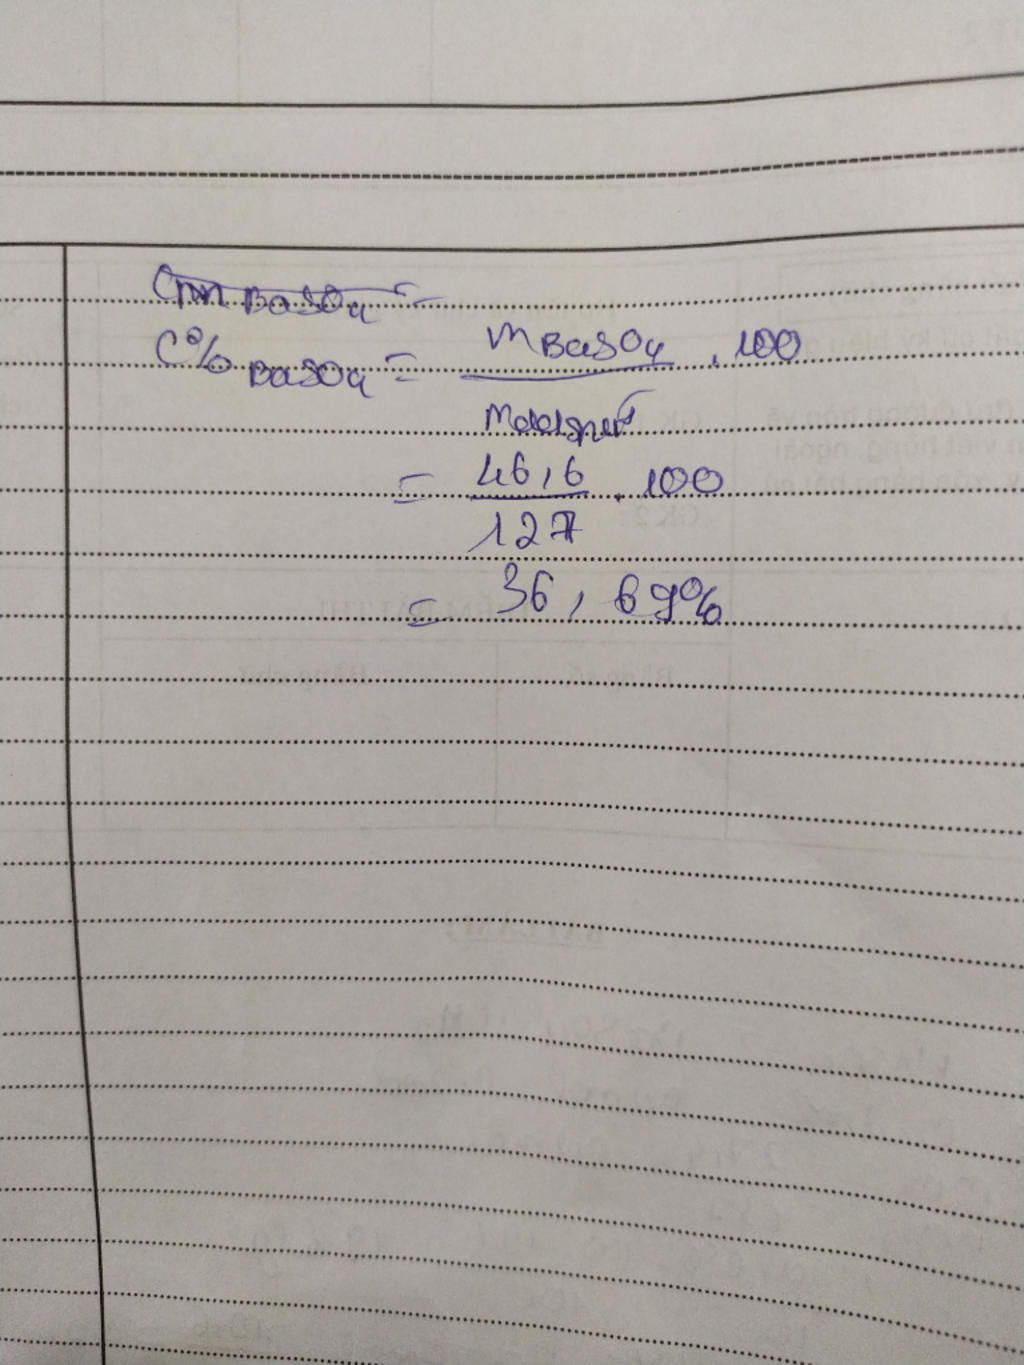 C% BaSO4 = mBaSO4 / mddspư . 100
= 46,6 / 127 . 100
= 36,69%